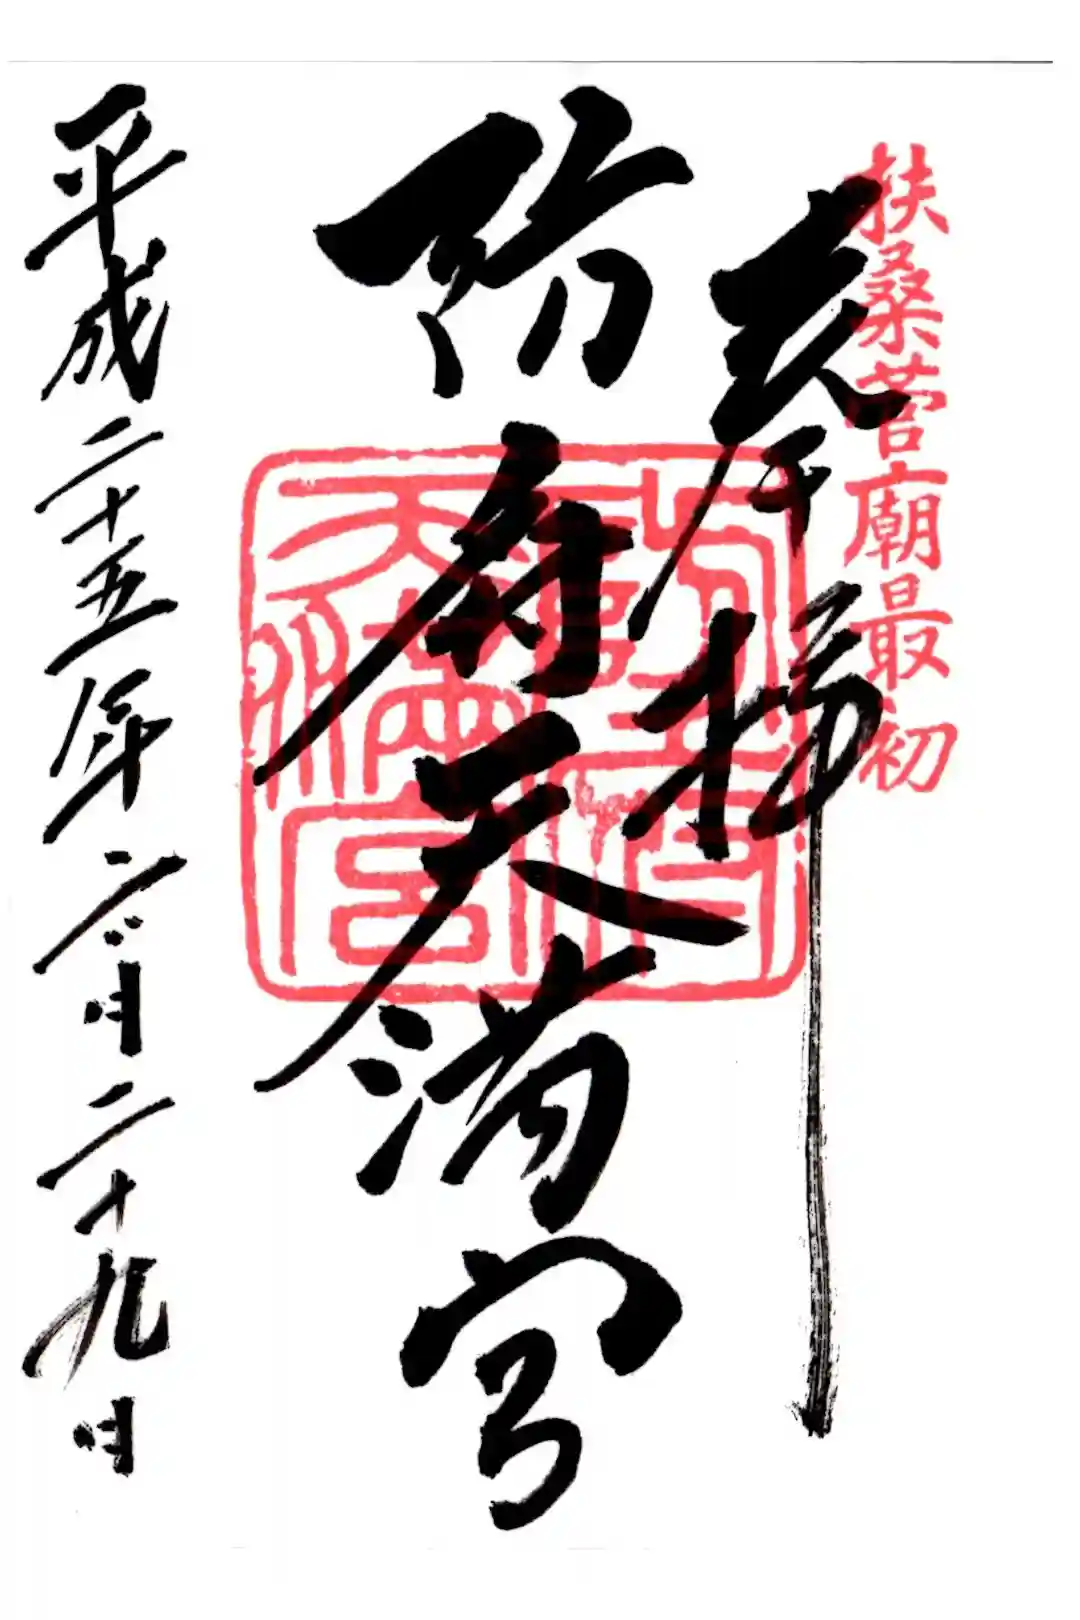 扶桑菅廟最初
奉拝
防府天満宮
平成二十五年六月二十九日